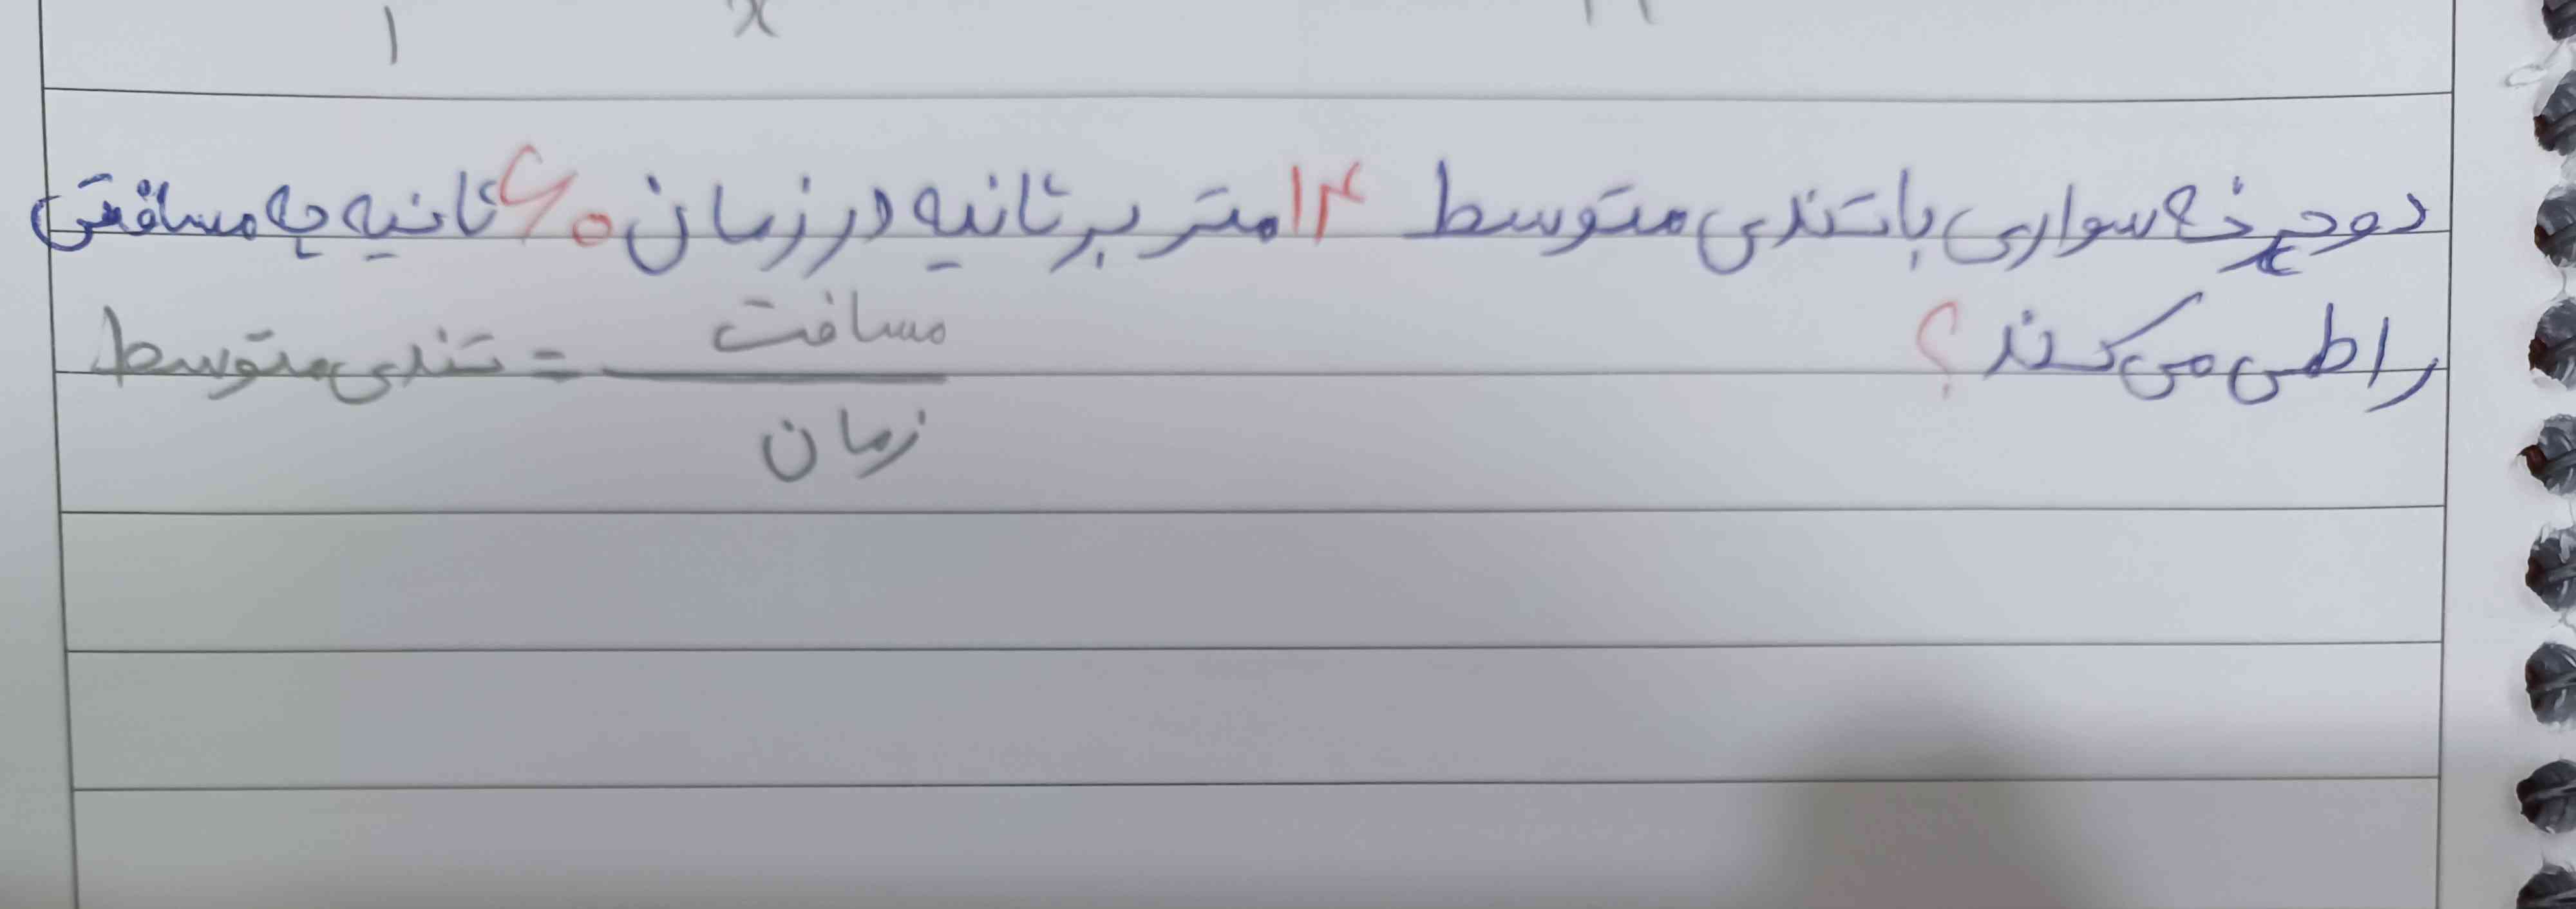 دوچرخه سواری با تندی متوسط ۱۴ متر بر ثانیه در زمان ۶۰ ثانیه چه مسافتی
را طی می کند؟
تندی متوسط = مسافت / زمان